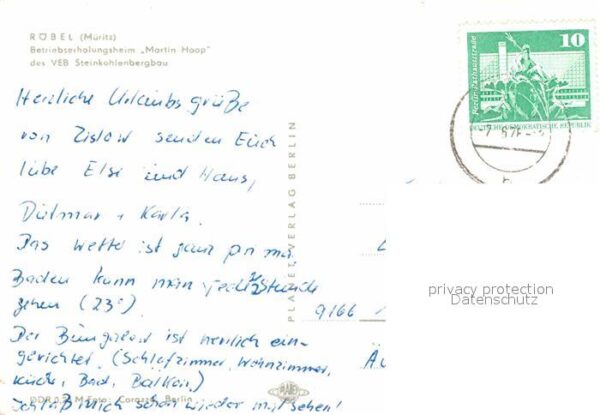 RÖBEL (Müritz)
Betriebserholungsheim „Martin Hoop"
des VEB Steinkohlenbergbau
Herzliche Urlaubsgrüße
von Zislow senden Euch
liebe Elsi und Hans,
Dietmar + Karla.
Das Wetter ist ganz prima,
Baden kann man jede Stunde
gehen (23°).
Der Bungalow ist herrlich ein-
gerichtet (Schlafzimmer, Wohnzimmer,
Küche, Bad, Balkon)
schon wieder mal sehen!
PLANET-VERLAG BERLIN
9166
10
DEUTSCHE DEMOKRATISCHE REPUBLIK
privacy protection
Datenschutz
Berlin